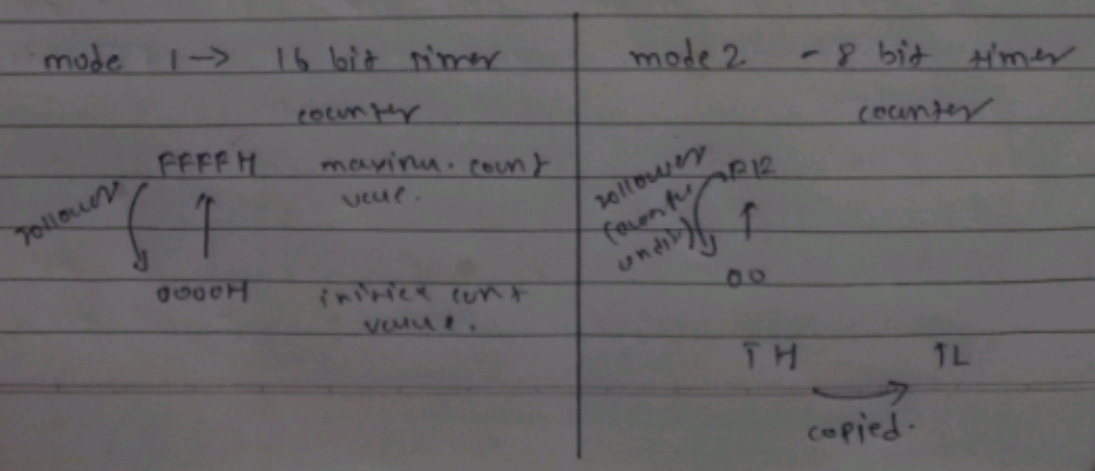 mode 1 → 16 bit timer
counter
FFFFH maximu. count
value.
rollover
0000H initial cunt
value.
mode 2 - 8 bit timer
counter
rollover
(counter
00
TH TL
copied.